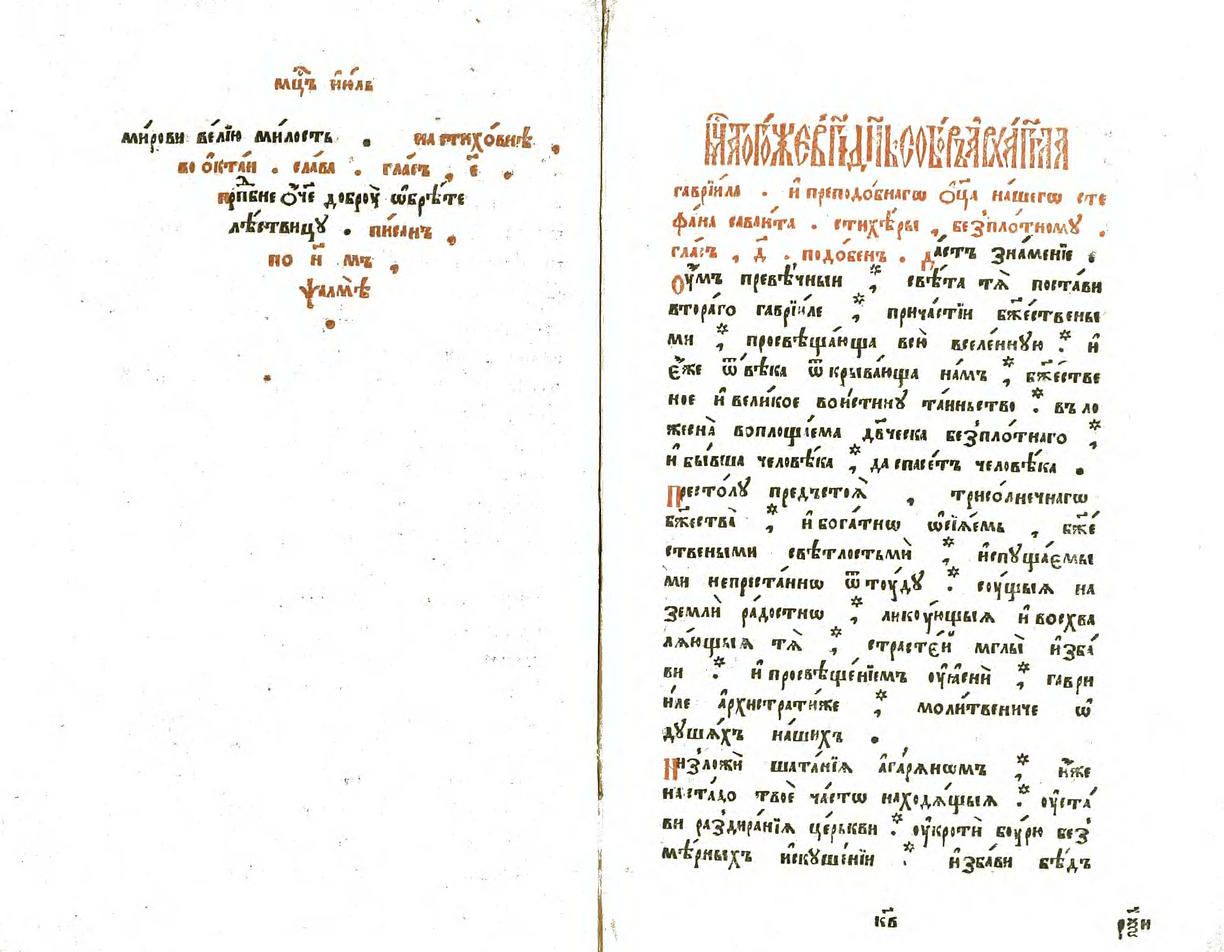 мц҃ъ і҆ю́ль
ми́рови ве́лїю ми́лость . на стихо́внѣ .
во ѻ҆кта́и . сла́ва . гла́съ , є҃ .
прпⷣбне ѻ҆́ч҃е доброу̀ ѡ҆брѣ́те
лѣ́ствицу . пи́санъ ,
по и҃ мъ ,
ѱалмѣ̀
.
И҆ТОГО́ЖЕ ВЪ ДН҃Ь СОБО́РЪ А҆РХА́ГГ҃ЛА
гаврїи́ла . и҆ преподо́бнагѡ ѻ҆ц҃а̀ на́шегѡ сте
фа́на саваи́та . стихѣ́ры , безпло́тному .
гла́съ , д҃ . подо́бенъ . да́стъ зна́менїе .
Оу҆́мъ превѣ́чныи ⁏ свѣ́та тѧ̀ поста́ви
втора́го гаврїи́ле ⁏ прича́стїи бж҃е́ствены
ми ⁏ просвѣща́юща всю̀ вселе́нную ⁏ и҆
є҆́же ѿ вѣ́ка ѿкрыва́юща на́мъ ⁏ бж҃е́стве
ное и҆ вели́кое вои́стину та́иньство ⁏ въ ло
жесна̀ воплощїе́ма дв҃ческа безпло́тнаго ⁏
и҆ бы́вша человѣ́ка ⁏ да спасе́тъ человѣ́ка .
Престо́лу предъстоѧ̀ , трисо́лнечнагѡ
бж҃ества̀ ⁏ и҆ бога́тнѡ ѡ҆сїѧ́емь , бж҃е́
ствеными свѣ́тлостьмѝ ⁏ и҆спуща́емы
ми непреста́ннѡ ѿтоу́ду ⁏ соу́щыѧ на
землѝ ра́достнѡ ⁏ ликоу́ющыѧ и҆ восхва
лѧ́ющыѧ тѧ̀ ⁏ страсте́и мглы̀ и҆зба́
ви ⁏ и҆ просвѣще́нїемъ оу҆ꙗ҆снѝ ⁏ гаври
и́ле а҆рхистрати́же ⁏ моли́твениче ѡ҆
душа́хъ на́шихъ .
Низложѝ шата́нїѧ а҆гарѧ́нѡмъ ⁏ и҆̀же
на ста́до твоѐ ча́стѡ находѧ́щыѧ ⁏ оу҆ста́
ви раздира́нїѧ це́рькви ⁏ оу҆кротѝ боу́рю без
мѣ́рныхъ и҆скуше́нїи ⁏ и҆зба́ви бѣ́дъ
кв҃